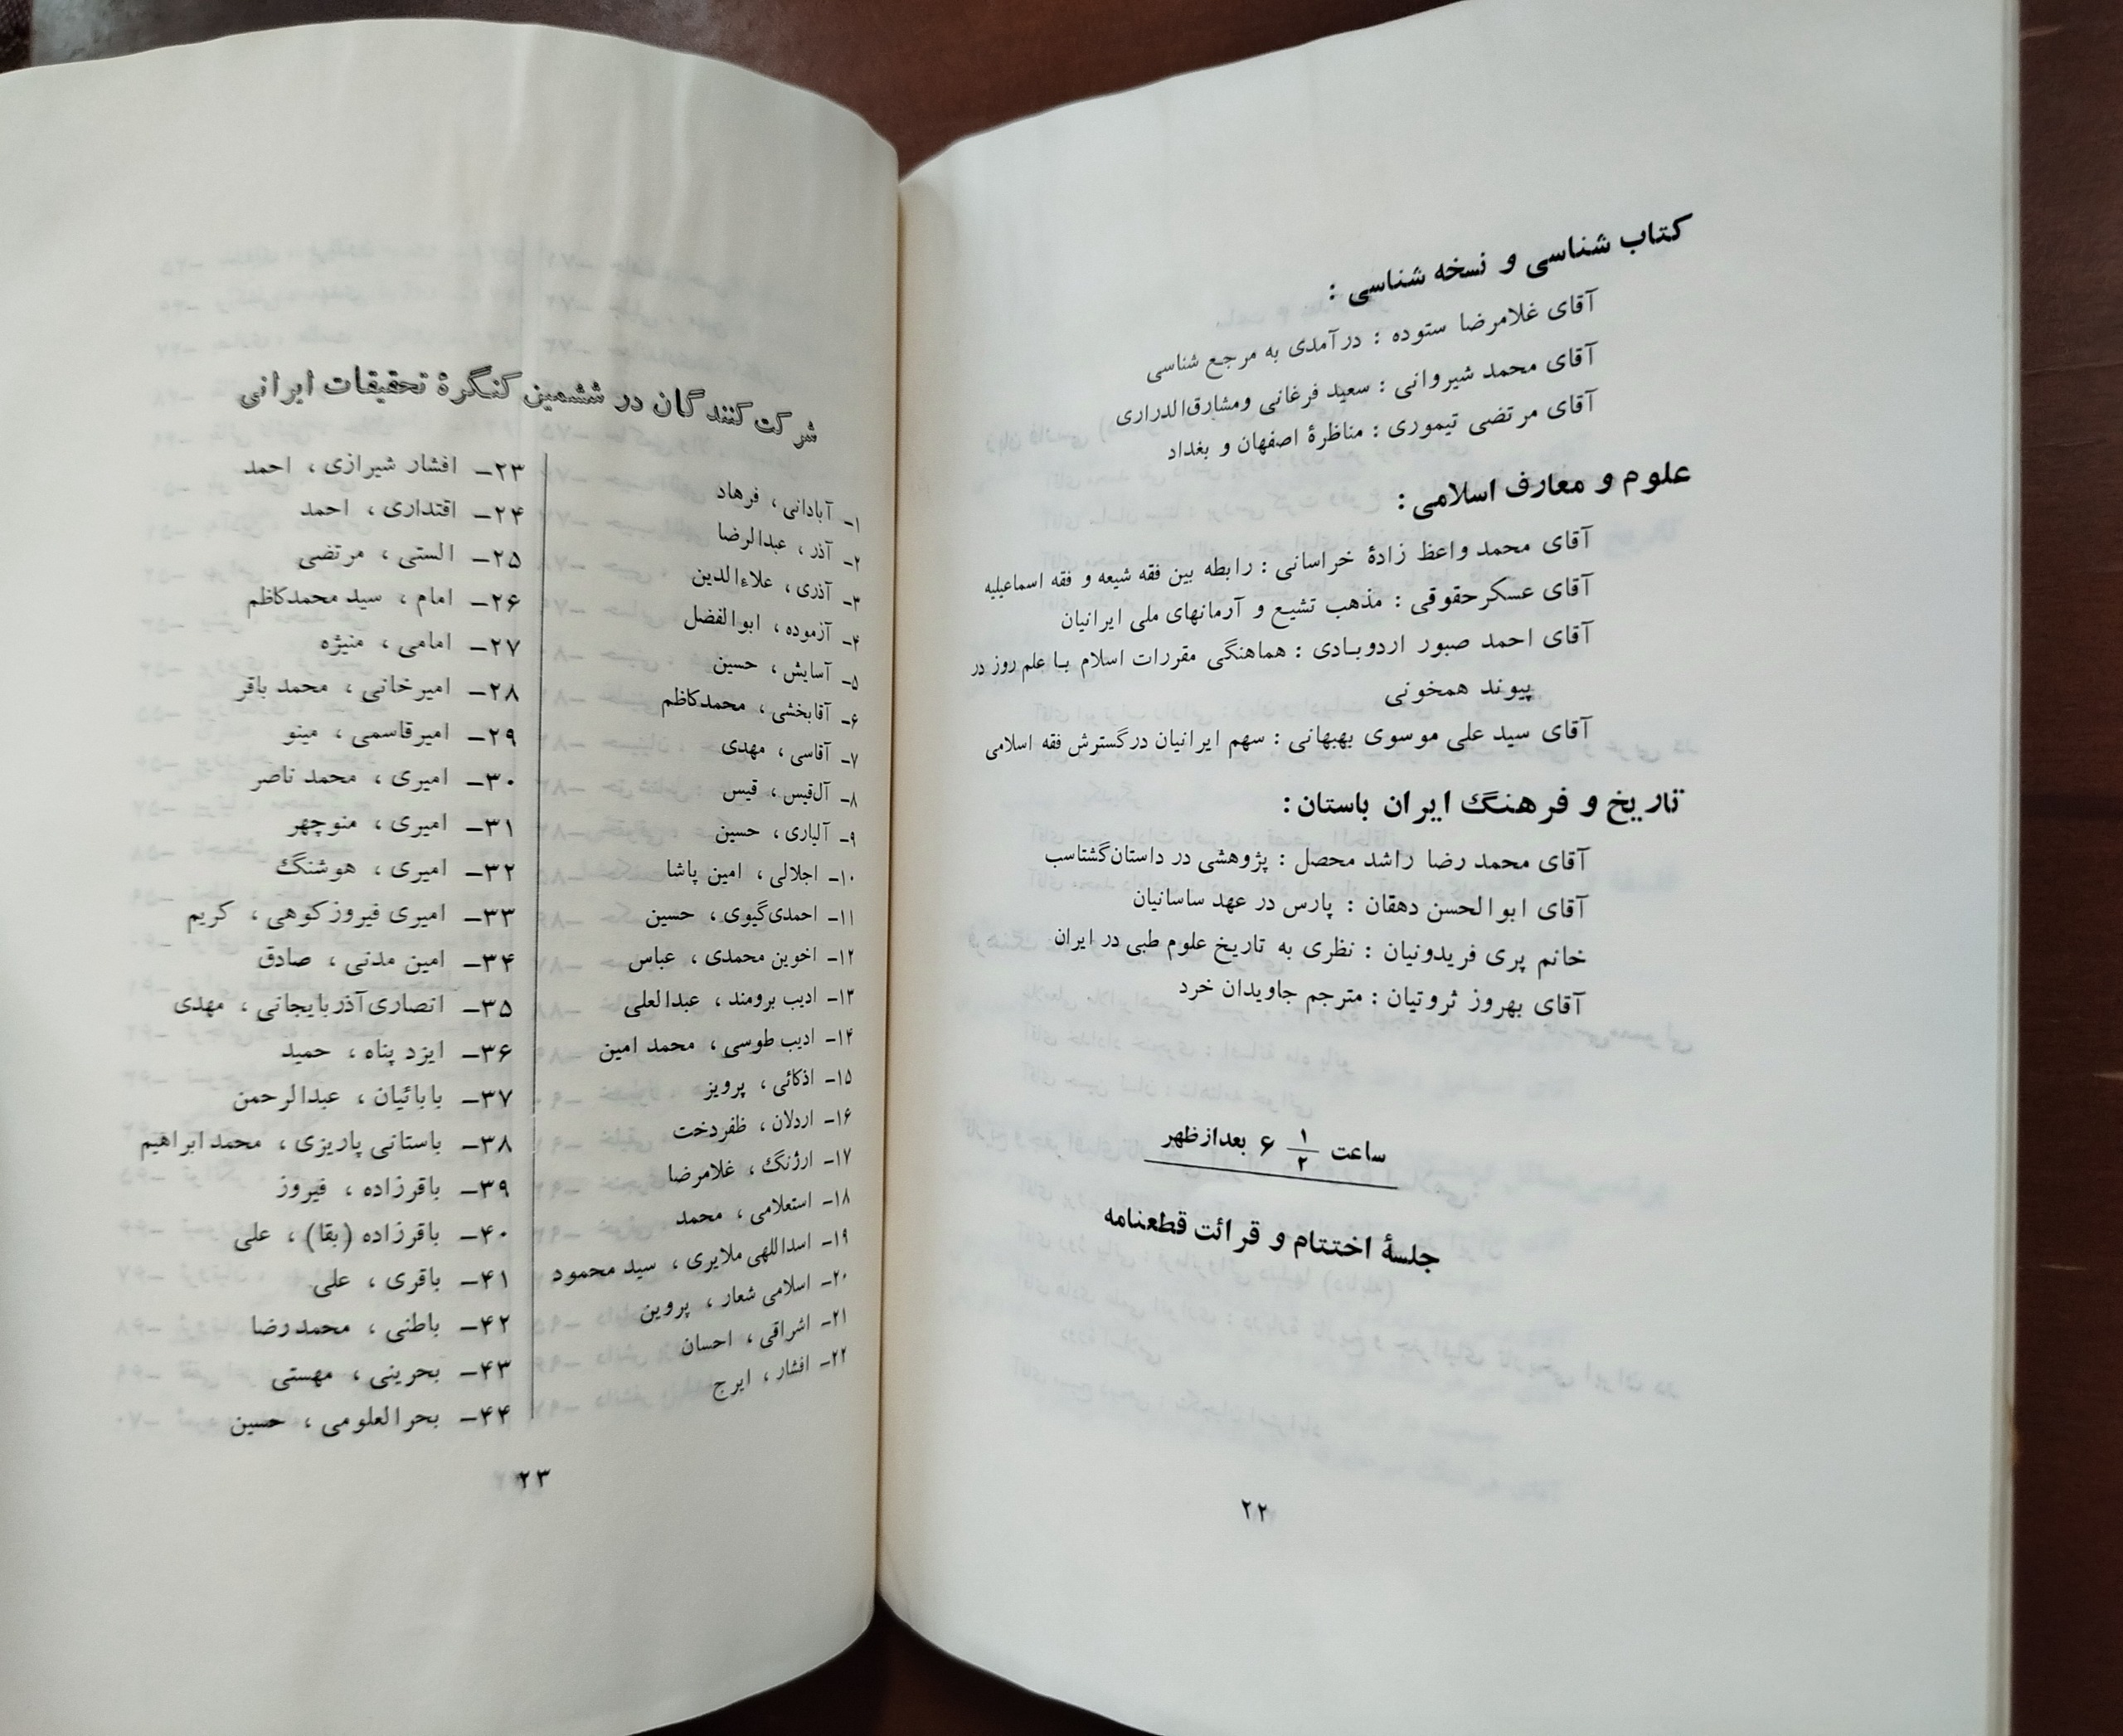 کتاب شناسی و نسخه شناسی :
آقای غلامرضا ستوده : درآمدی به مرجع شناسی
آقای محمد شیروانی : سعید فرغانی ومشارق‌الدراری
آقای مرتضی تیموری : مناظرهٔ اصفهان و بغداد
علوم و معارف اسلامی :
آقای محمد واعظ زادهٔ خراسانی : رابطه بین فقه شیعه و فقه اسماعیلیه
آقای عسکرحقوقی : مذهب تشیع و آرمانهای ملی ایرانیان
آقای احمد صبور اردوبادی : هماهنگی مقررات اسلام با علم روز در
پیوند همخونی
آقای سید علی موسوی بهبهانی : سهم ایرانیان درگسترش فقه اسلامی
تاریخ و فرهنگ ایران باستان :
آقای محمد رضا راشد محصل : پژوهشی در داستان‌گشتاسب
آقای ابوالحسن دهقان : پارس در عهد ساسانیان
خانم پری فریدونیان : نظری به تاریخ علوم طبی در ایران
آقای بهروز ثروتیان : مترجم جاویدان خرد
ساعت ۱/۲ ۶ بعدازظهر
جلسهٔ اختتام و قرائت قطعنامه
۲۲
شرکت کنندگان در ششمین کنگرهٔ تحقیقات ایرانی
۱ـ آبادانی ، فرهاد
۲ـ آذر ، عبدالرضا
۳ـ آذری ، علاءالدین
۴ـ آزموده ، ابوالفضل
۵ـ آسایش ، حسین
۶ـ آقابخشی ، محمدکاظم
۷ـ آقاسی ، مهدی
۸ـ آل‌قیس ، قیس
۹ـ آلیاری ، حسین
۱۰ـ اجلالی ، امین پاشا
۱۱ـ احمدی‌گیوی ، حسین
۱۲ـ اخوین محمدی ، عباس
۱۳ـ ادیب برومند ، عبدالعلی
۱۴ـ ادیب طوسی ، محمد امین
۱۵ـ اذکائی ، پرویز
۱۶ـ اردلان ، ظفردخت
۱۷ـ ارژنگ ، غلامرضا
۱۸ـ استعلامی ، محمد
۱۹ـ اسداللهی ملایری ، سید محمود
۲۰ـ اسلامی شعار ، پروین
۲۱ـ اشراقی ، احسان
۲۲ـ افشار ، ایرج
۲۳ـ افشار شیرازی ، احمد
۲۴ـ اقتداری ، احمد
۲۵ـ الستی ، مرتضی
۲۶ـ امام ، سید محمدکاظم
۲۷ـ امامی ، منیژه
۲۸ـ امیرخانی ، محمد باقر
۲۹ـ امیرقاسمی ، مینو
۳۰ـ امیری ، محمد ناصر
۳۱ـ امیری ، منوچهر
۳۲ـ امیری ، هوشنگ
۳۳ـ امیری فیروزکوهی ، کریم
۳۴ـ امین مدنی ، صادق
۳۵ـ انصاری‌آذربایجانی ، مهدی
۳۶ـ ایزد پناه ، حمید
۳۷ـ بابائیان ، عبدالرحمن
۳۸ـ باستانی پاریزی ، محمدابراهیم
۳۹ـ باقرزاده ، فیروز
۴۰ـ باقرزاده (بقا) ، علی
۴۱ـ باقری ، علی
۴۲ـ باطنی ، محمدرضا
۴۳ـ بحرینی ، مهستی
۴۴ـ بحرالعلومی ، حسین
۲۳